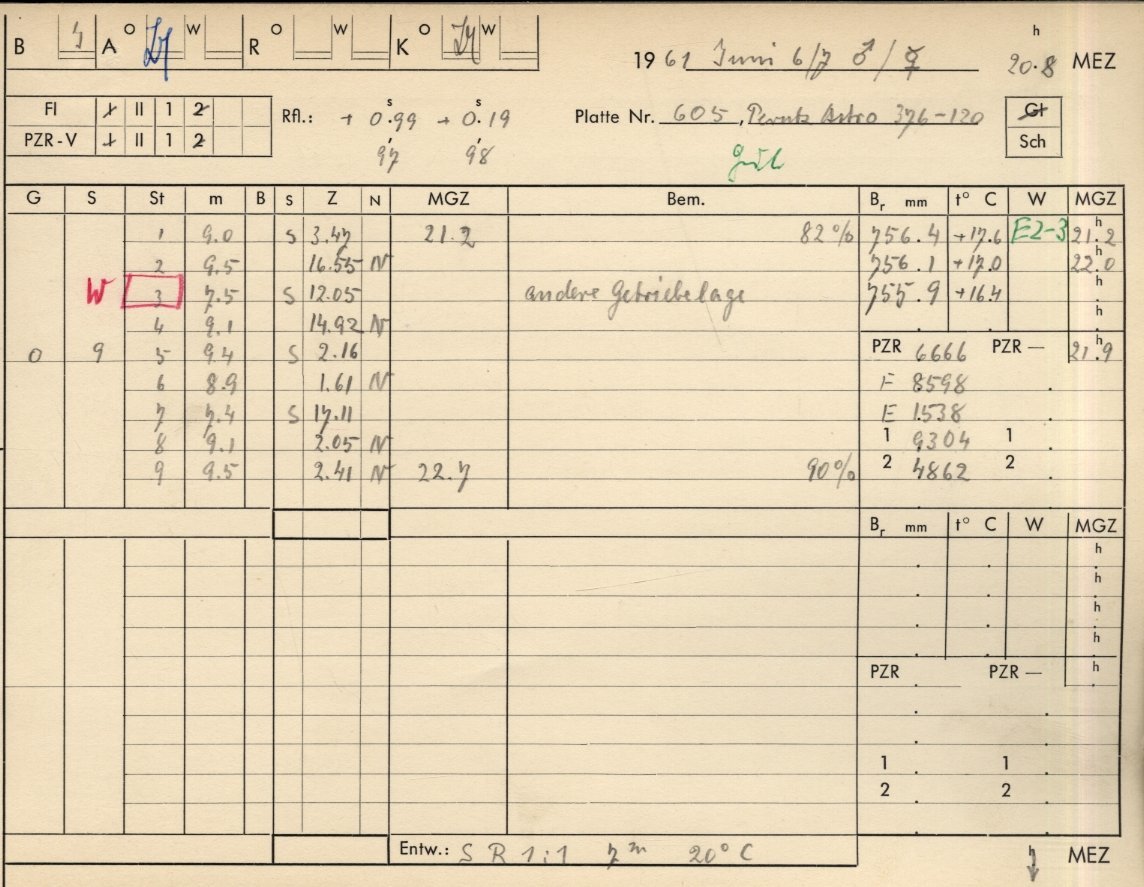 B A O W R O W K O W 1961 Juni 6/7 ♂/☿ 20.8 h MEZ
FI I II 1 2 Rfl.: + 0.99 s + 0.19 s Platte Nr. 605, Perutz Astro 376-120 Gt
PZR-V I II 1 2 97 98 gut Sch
G S St m B S Z N MGZ Bem. Br mm t° C W MGZ
1 9.0 S 3.47 21.2 82% 756.4 +17.6 E2-3 21.2 h
2 9.5 16.55 N 756.1 +17.0 22.0 h
W 3 7.5 S 12.05 andere Getriebelage 755.9 +16.4 h
4 9.1 14.92 N h
0 9 5 9.4 S 2.16 PZR 6666 PZR — 21.9 h
6 8.9 1.61 N F 8598
7 7.4 S 17.11 E 1538
8 9.1 2.05 N 1 9304 1
9 9.5 2.41 N 22.7 90% 2 4862 2
Br mm t° C W MGZ
h
h
h
h
PZR PZR — h
1 1
2 2
Entw.: S R 1:1 7m 20° C h MEZ